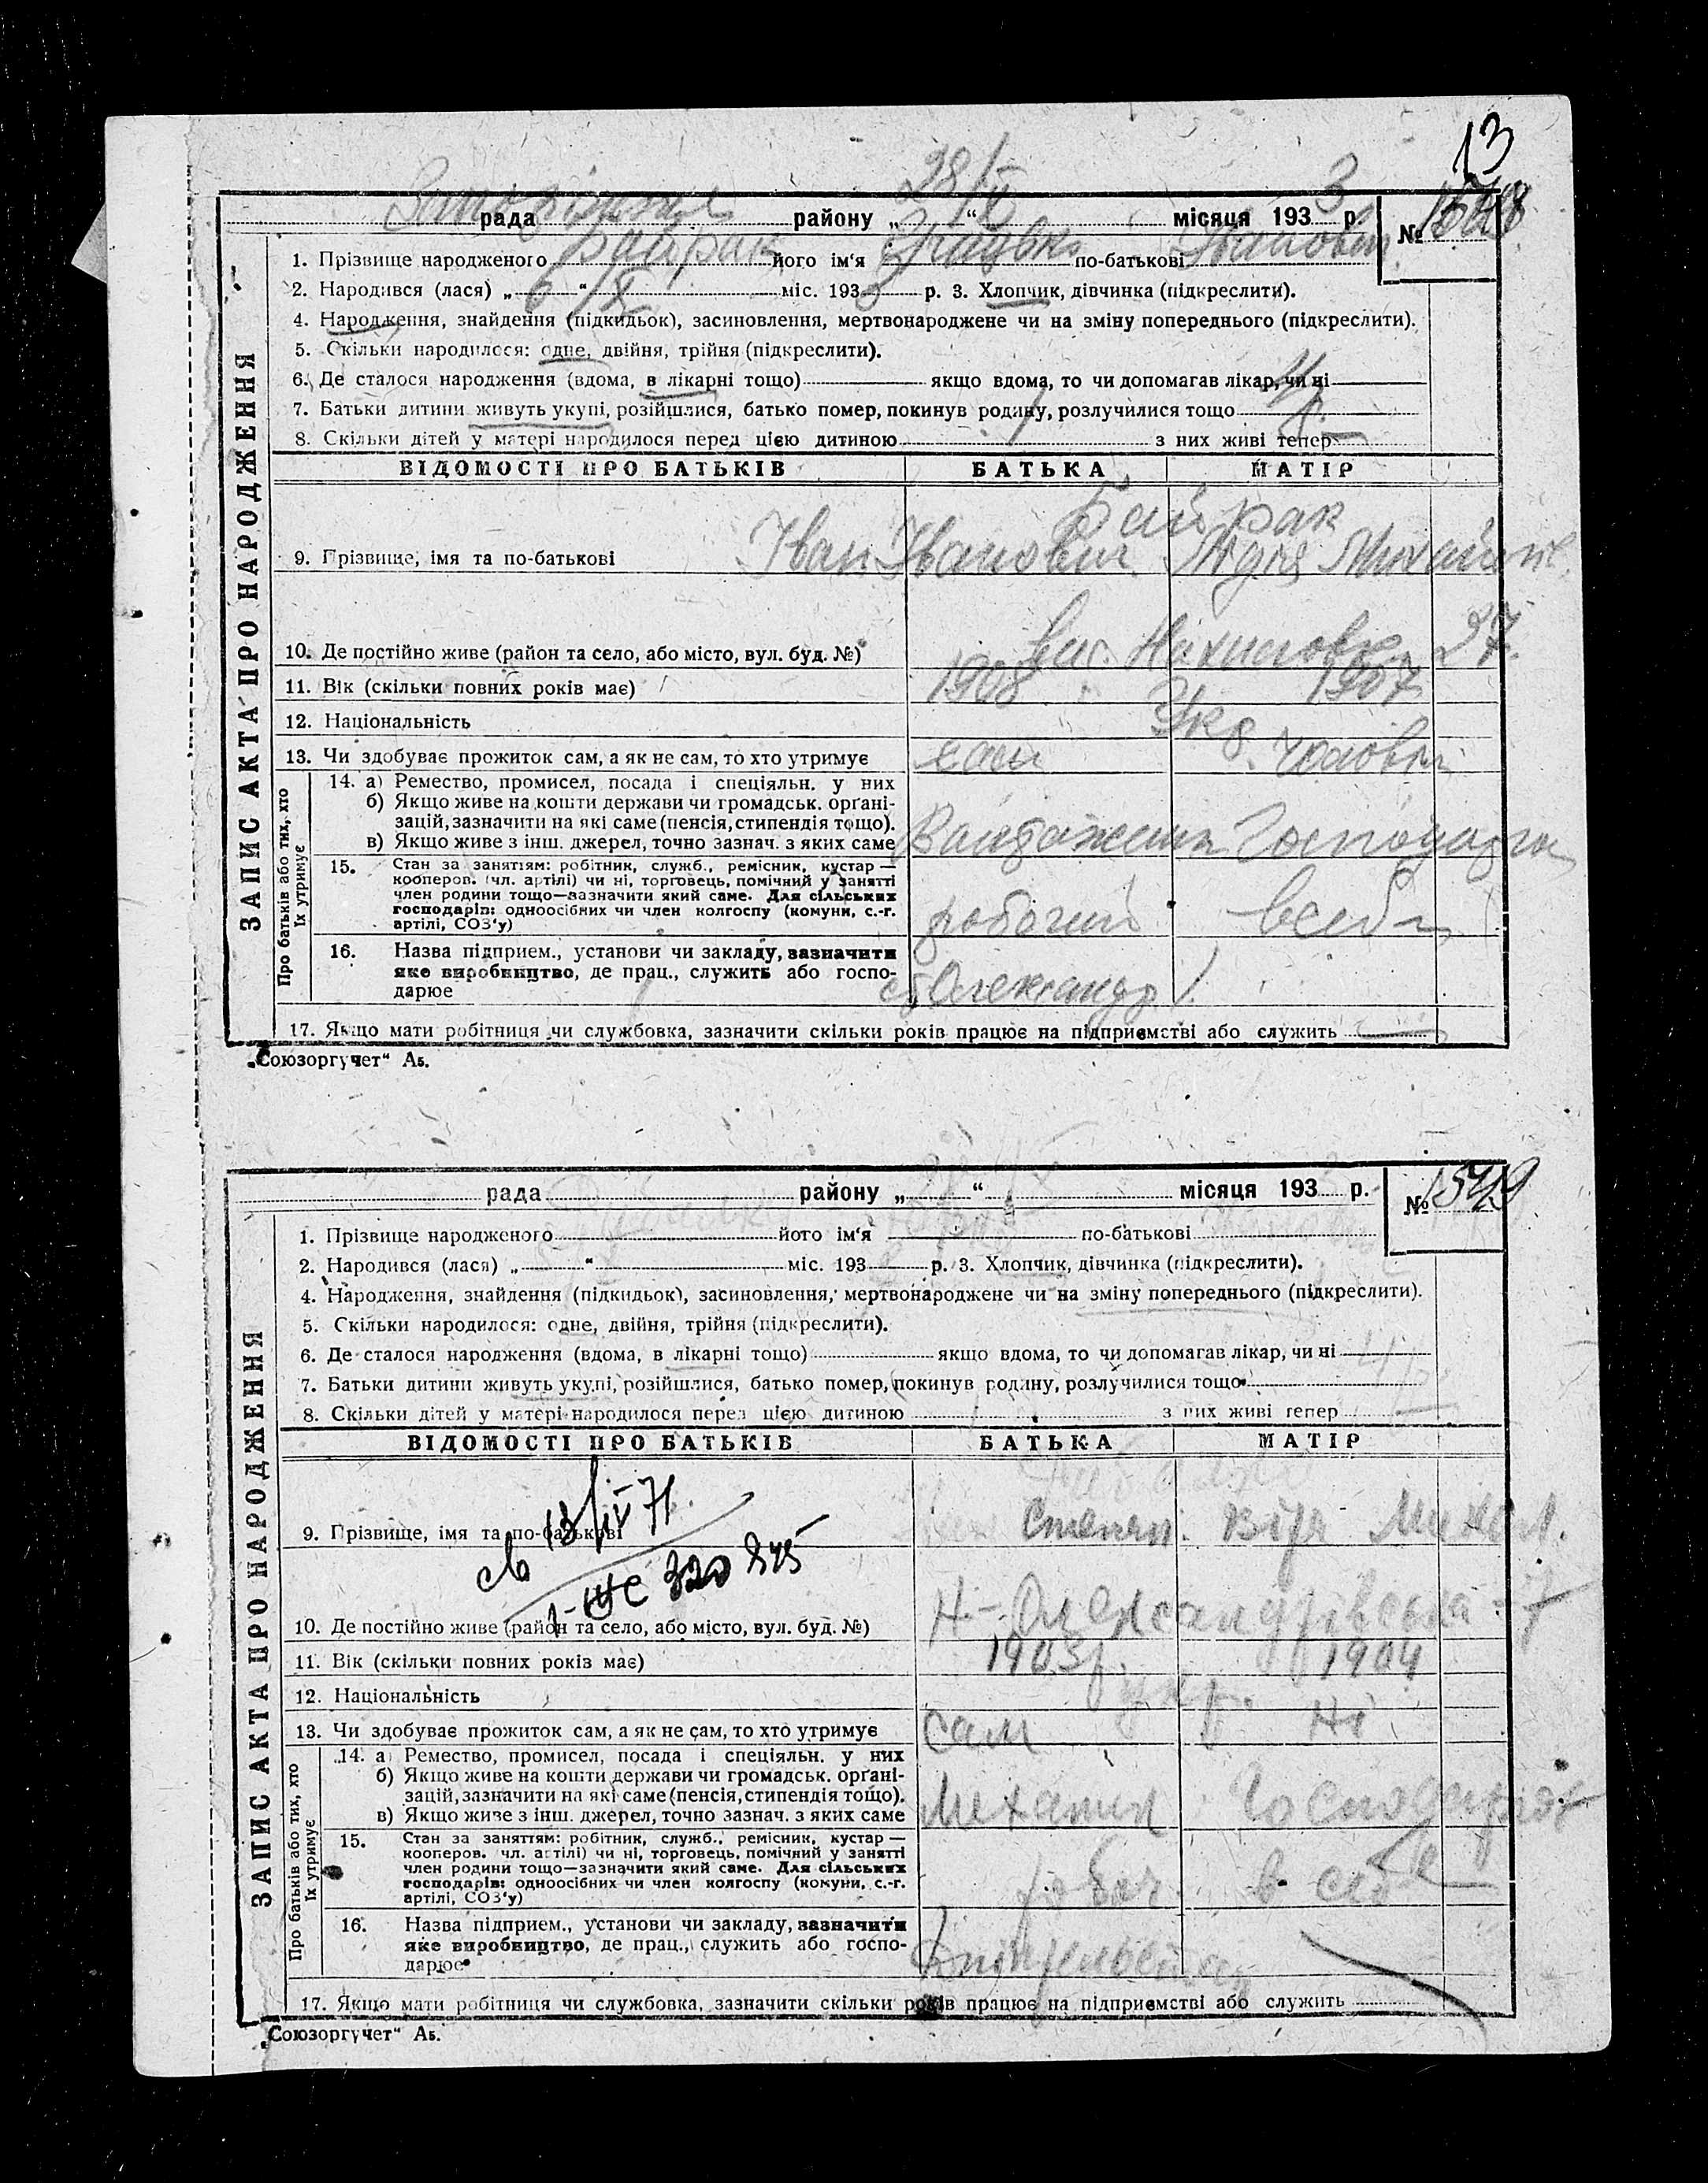 13
28/X 3
рада району „ “ місяця 193 р. № 1548
ЗАПИС АКТА ПРО НАРОДЖЕННЯ
1. Прізвище народженого Байрак його ім'я по-батькові Іванович
2. Народився (лася) „ 6 “ X міс. 193 3 р. 3. Хлопчик, дівчинка (підкреслити).
4. Народження, знайдення (підкидьок), засиновлення, мертвонароджене чи на зміну попереднього (підкреслити).
5. Скільки народилося: одне, двійня, трійня (підкреслити).
6. Де сталося народження (вдома, в лікарні тощо) якщо вдома, то чи допомагав лікар, чи ні
7. Батьки дитини живуть укупі, розійшлися, батько помер, покинув родину, розлучилися тощо
8. Скільки дітей у матері народилося перед цією дитиною з них живі тепер
ВІДОМОСТІ ПРО БАТЬКІВ БАТЬКА МАТІР
Байрак
9. Прізвище, імя та по-батькові Іван Іванович Лідія Михайл.
10. Де постійно живе (район та село, або місто, вул. буд. №) 27.
11. Вік (скільки повних років має) 1908 1907
12. Національність Укр.
13. Чи здобуває прожиток сам, а як не сам, то хто утримує сам чоловік
Про батьків або тих, хто їх утримує
14. а) Ремество, промисел, посада і спеціяльн. у них
б) Якщо живе на кошти держави чи громадськ. орґані-
зацій, зазначити на які саме (пенсія, стипендія тощо).
в) Якщо живе з інш. джерел, точно зазнач. з яких саме Вантажник Господарка
15. Стан за заняттям: робітник, служб., ремісник, кустар —
коопероп. (чл. артілі) чи ні, торговець, помічний у занятті
член родини тощо—зазначити який саме. Для сільських
господарів: одноосібних чи член колгоспу (комуни, с.-г.
артілі, СОЗ'у) робочий всебе
16. Назва підприєм., установи чи закладу, зазначити
яке виробництво, де прац., служить або госпо-
дарює ст Олександр.
17. Якщо мати робітниця чи службовка, зазначити скільки років працює на підприємстві або служить
„Союзоргучет“ Аб.
рада району „ “ місяця 193 р. № 1549
ЗАПИС АКТА ПРО НАРОДЖЕННЯ
1. Прізвище народженого його ім'я по-батькові
2. Народився (лася) „ “ міс. 193 р. 3. Хлопчик, дівчинка (підкреслити).
4. Народження, знайдення (підкидьок), засиновлення, мертвонароджене чи на зміну попереднього (підкреслити).
5. Скільки народилося: одне, двійня, трійня (підкреслити).
6. Де сталося народження (вдома, в лікарні тощо) якщо вдома, то чи допомагав лікар, чи ні
7. Батьки дитини живуть укупі, розійшлися, батько помер, покинув родину, розлучилися тощо
8. Скільки дітей у матері народилося перед цією дитиною з них живі тепер
ВІДОМОСТІ ПРО БАТЬКІВ БАТЬКА МАТІР
св 13/IV 71.
9. Прізвище, імя та по-батькові Степан. Віра Михай.
320 845
10. Де постійно живе (район та село, або місто, вул. буд. №) Н-Олександрівська - 7
11. Вік (скільки повних років має) 1903р. 1904
12. Національність укр.
13. Чи здобуває прожиток сам, а як не сам, то хто утримує сам Ні
Про батьків або тих, хто їх утримує
14. а) Ремество, промисел, посада і спеціяльн. у них
б) Якщо живе на кошти держави чи громадськ. орґані-
зацій, зазначити на які саме (пенсія, стипендія тощо).
в) Якщо живе з інш. джерел, точно зазнач. з яких саме Механик Господарка
15. Стан за заняттям: робітник, служб., ремісник, кустар —
кооперов. чл. артілі) чи ні, торговець, помічний у занятті
член родини тощо—зазначити який саме. Для сільських
господарів: одноосібних чи член колгоспу (комуни, с.-г.
артілі, СОЗ'у) робоч. в себе
16. Назва підприєм., установи чи закладу, зазначити
яке виробництво, де прац., служить або госпо-
дарює Дніпрельстан
17. Якщо мати робітниця чи службовка, зазначити скільки років працює на підприємстві або служить
„Союзоргучет“ Аб.